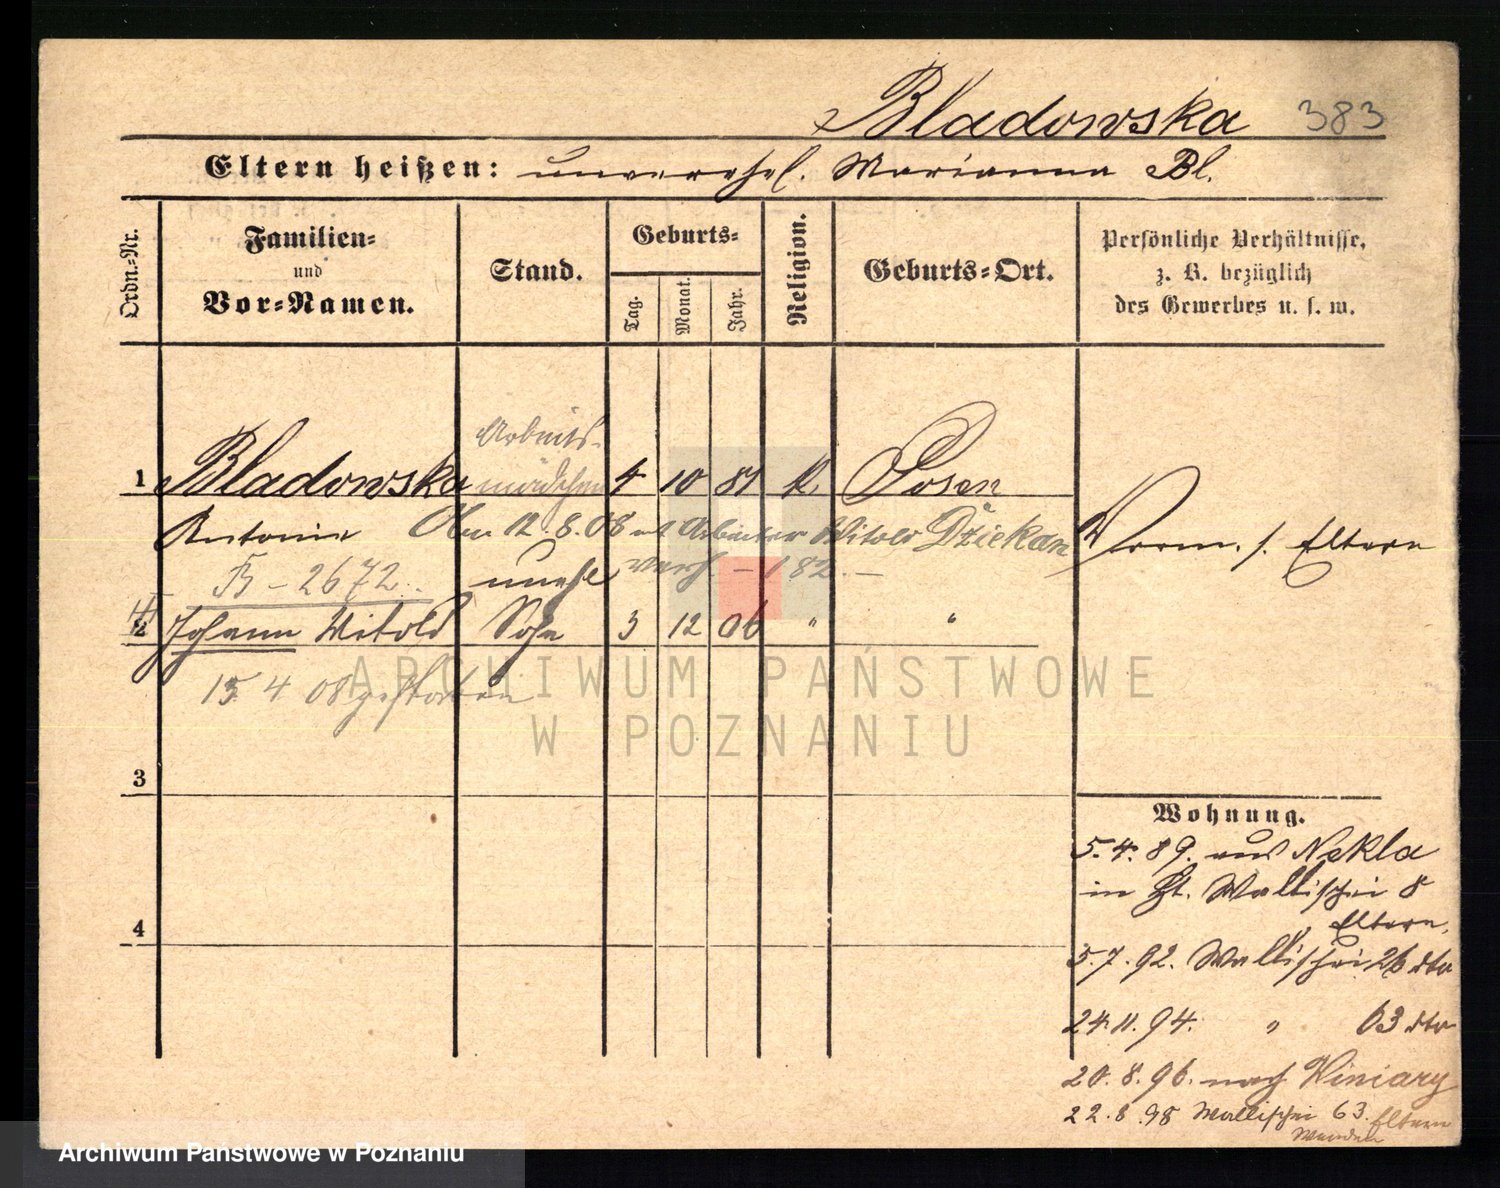 Bladowska 383
Eltern heißen: unverehel. Marianna Bl.
Ordn.-Nr.
Familien-
und
Vor-Namen.
Stand.
Geburts-
Tag.
Monat.
Jahr.
Religion.
Geburts-Ort.
Persönliche Verhältnisse,
z. B. bezüglich
des Gewerbes u. s. w.
Arbeits-
1 Bladowska mädchen 4 10 81 k. Posen
Antonie 12.8.08 Arbeiter Witold Dziekan
Vorm. s. Eltern
B - 2672. unehl verh. - 182. -
2 Johann Witold Sohn 3 12 06 " "
15. 4 08 gestorben
ARCHIWUM PAŃSTWOWE
W POZNANIU
3
4
Wohnung.
5.4.89. aus Nekla
in Wallischei 8
Eltern.
5.7.92. Wallischei 26 dto
24.11.94. " 63 dto
20.8.96. nach Winiary
22.8.98 Wallischei 63. Eltern
Archiwum Państwowe w Poznaniu